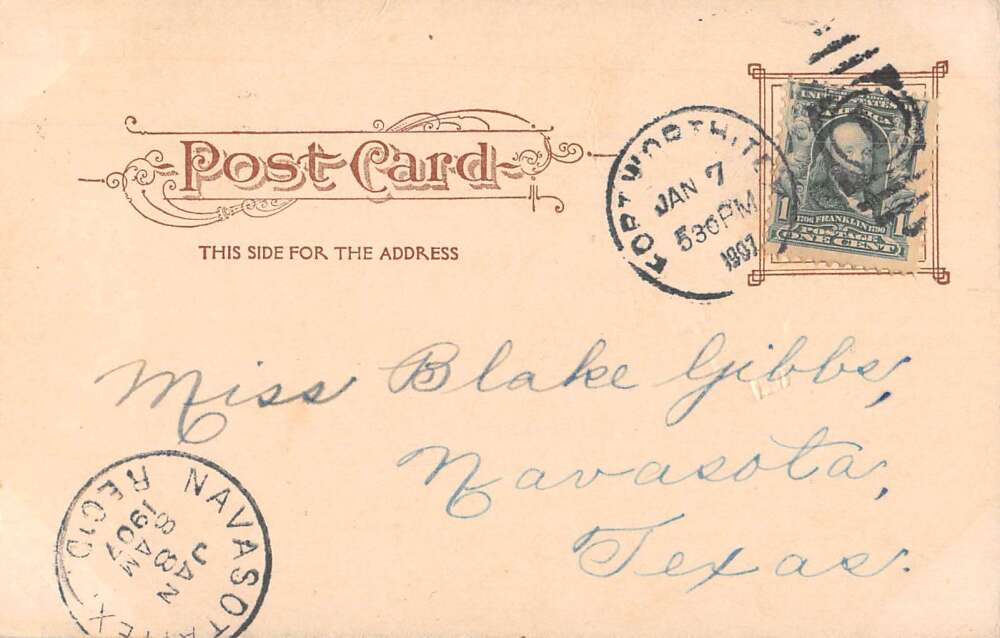 Post Card
THIS SIDE FOR THE ADDRESS
FORT WORTH
JAN 7
530 PM
1907
UNITED STATES
AMERICA
1 1706 FRANKLIN 1790 1
POSTAGE
ONE CENT
Miss Blake Gibbs,
Navasota,
Texas.
NAVASOTA TEX.
JAN
8
8 AM
1907
REC'D.